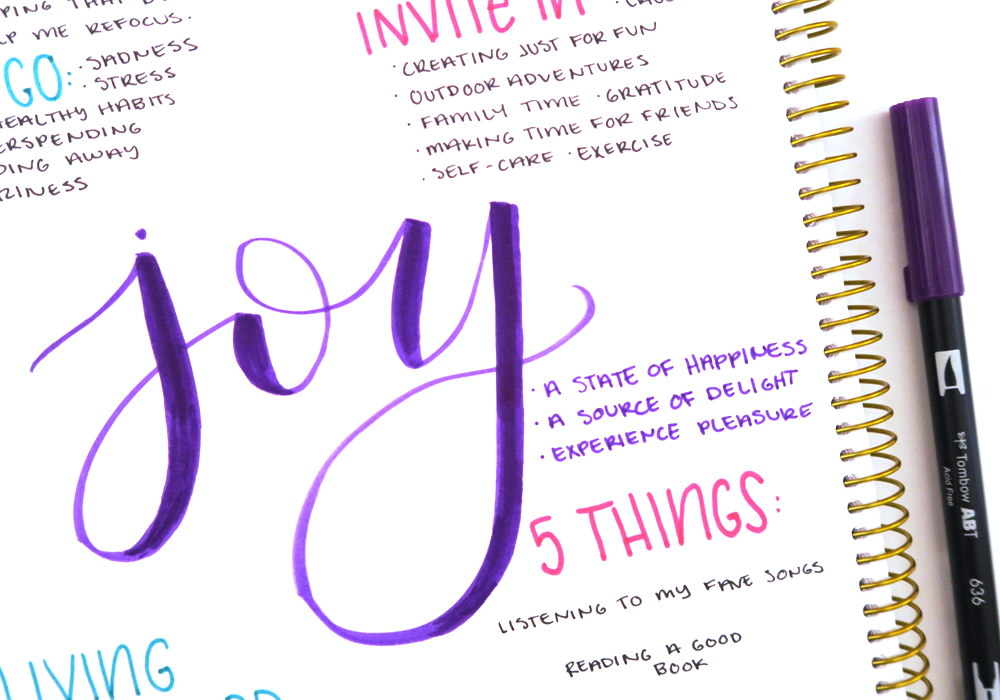 ME REFOCUS.
GO: · SADNESS
· STRESS
HABITS
AWAY
INVITE IN
· CREATING JUST FOR FUN
· OUTDOOR ADVENTURES
· FAMILY TIME · GRATITUDE
· MAKING TIME FOR FRIENDS
· SELF-CARE · EXERCISE
joy
· A STATE OF HAPPINESS
· A SOURCE OF DELIGHT
· EXPERIENCE PLEASURE
5 THINGS:
LISTENING TO MY FAVE SONGS
READING A GOOD
BOOK
LIVING
Tombow ABT
Acid Free
636